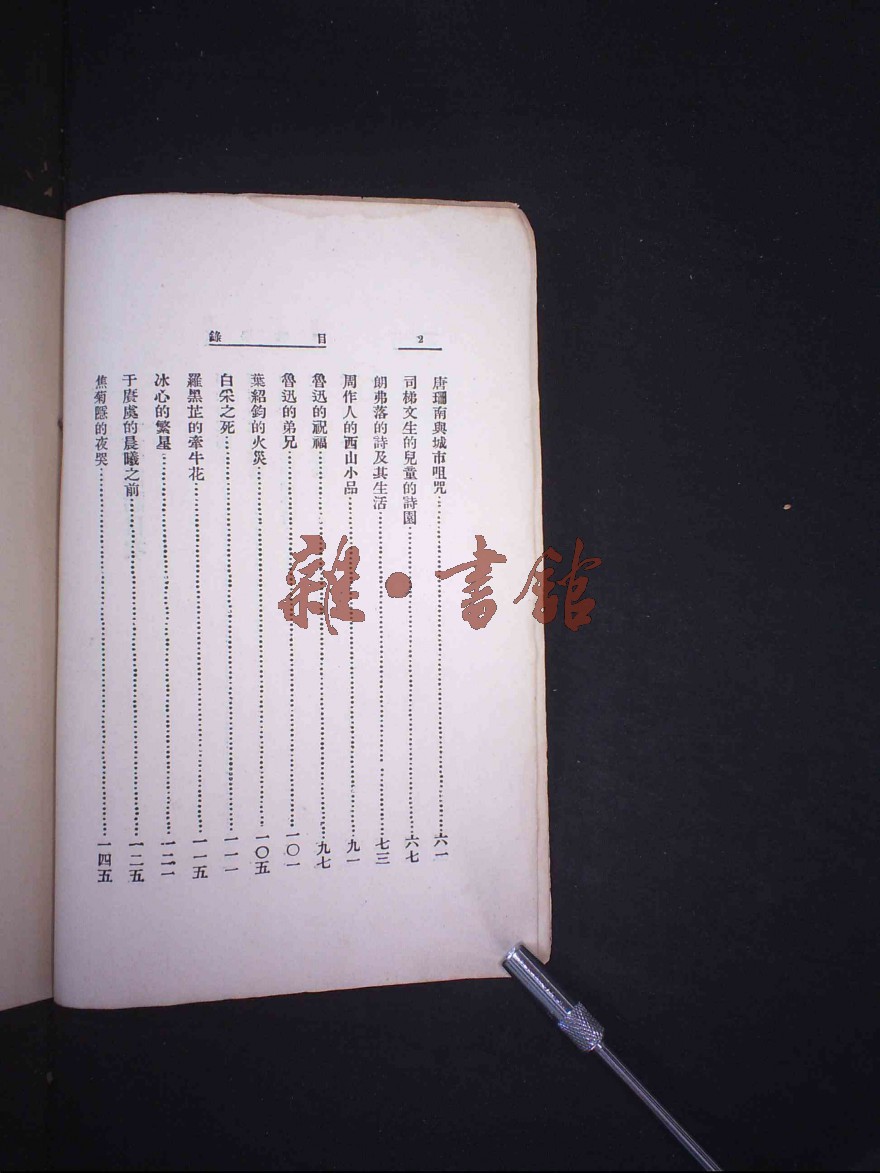 2
目錄
唐珊南與城市咀咒……六一
司梯文生的兒童的詩園……六七
朗弗落的詩及其生活……七三
周作人的西山小品……九一
魯迅的祝福……九七
魯迅的弟兄……一〇一
葉紹鈞的火災……一〇五
白采之死……一一一
羅黑芷的牽牛花……一一五
冰心的繁星……一二一
于賡虞的晨曦之前……一二五
焦菊隱的夜哭……一四五
雜·書館